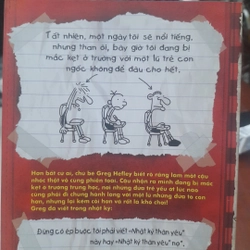 Tất nhiên, một ngày tôi sẽ nổi tiếng,
nhưng than ôi, bây giờ tôi đang bị
mắc kẹt ở trường với một lũ trẻ con
ngốc không để đâu cho hết.
Hơn bất cứ ai, chú bé Greg Heffley biết rõ ràng làm một cậu
nhóc thật vô cùng phiền toái. Cậu nhận ra mình đang bị mắc
kẹt ở trường trung học, nơi những đứa trẻ yếu ớt lúc nào
cũng phải đi chung hành lang với một lũ những đứa to con
hơn, nhưng lại kém cỏi hơn và rất là khó chơi!
Greg đã viết trong nhật ký:
Đừng có ép buộc tôi phải viết "Nhật ký thân yêu"
này hay "Nhật ký thân yêu" nọ".